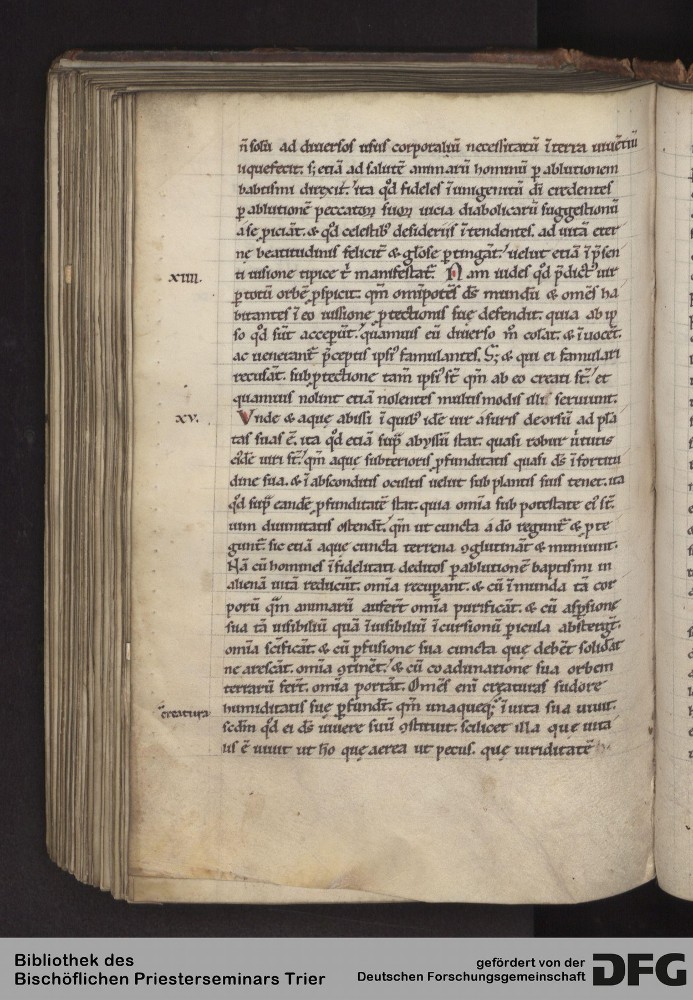 n̄ solū ad diuersos usus corporaliū necessitatū ī terra uiuētiū
liquefecit. s; etiā ad salutē animarū hominū p̱ ablutionem
baptismi direxit. ita qd̄ fideles ī unigenitū dī credentes
p̱ ablutionē peccatoꝝ suoꝝ uicia diabolicarū suggestionū
a se ꝓiciāt. & qd̄ celestib; desideriis ītendentes. ad uitā eter
nę beatitudinis felicit̄ & glōse p̱tingāt. uelut etiā ī p̄sen
xiiii.
ti uisione tipice t̄ manifestat̄. Nam uides qd̄ p̄dict᷒ uir
p̱ totū orbē ꝑspicit. qm̄ omīpotēs ds̄ mundū & omēs ha
bitantes ī eo uissione ꝓtectionis suę defendit. quia ab ip
so qd̄ sūt acceper̄t. quamuis eū diuerso m̄ colāt. & īuocēt.
ac uenerant̄ p̄ceptis ipsi᷒ famulantes. S; & qui ei famulari
recusāt. sub ꝓtectione tam̄ ipsi᷒ sт̄ qm̄ ab eo creati st̄. et
quamuis nolint etiā nolentes multis modis illi seruiunt.
xv.
Vnde & aquę abissi ī quib; idē uir a suris deorsū ad plā
tas suas ē. ita qd̄ etiā sup̄ abyssū stat. quasi robur uirtutis
eidē uiri st̄. qm̄ aquę subterioris ꝓfunditatis quasi ds̄ ī fortitu
dine sua. & ī absconditis ocultis uelut sub plantis suis tenet. ita
qd̄ sup̄ eandē ꝓfunditatē stat. quia omīa sub potestate ei᷒ st̄.
uim diuinitatis ostendt̄. qm̄ ut cuncta a do regunt̄ & ꝓte
gunt̄. sic etiā aquę cuncta terrena ꝯglutināt & muniunt.
Nā cū homines īfidelitati deditos p̱ ablutionē baptismi in
alienā uitā reducūt. omīa recupant. & cū īmunda tā cor
porū q̄m animarū auferт̄ omīa purificāt. & cū asp̱sione
sua tā uisibiliū quā īuisibiliū īcursionū p̱icula abstergt̄.
omīa scīficāt. & cū p̱fusione sua cuncta quę debēt solidāt
ne arescāt. omīa ꝯtinēt. & cū coadunatione sua orbem
terrarū fert̄. omīa portāt. Omēs eni creaturas sudore
c̄reatura
humiditatis suę p̱fundt̄. qm̄ unaquęq; ī uita sua uiuit.
scd̄m qd̄ ei ds̄ uiuere suū ꝯstituit. scilicet illa quę uita
lis ē uiuit ut ho quę aerea ut pecus. quę uiriditatē
Bibliothek des
Bischöflichen Priesterseminars Trier
gefördert von der
Deutschen Forschungsgemeinschaft
DFG